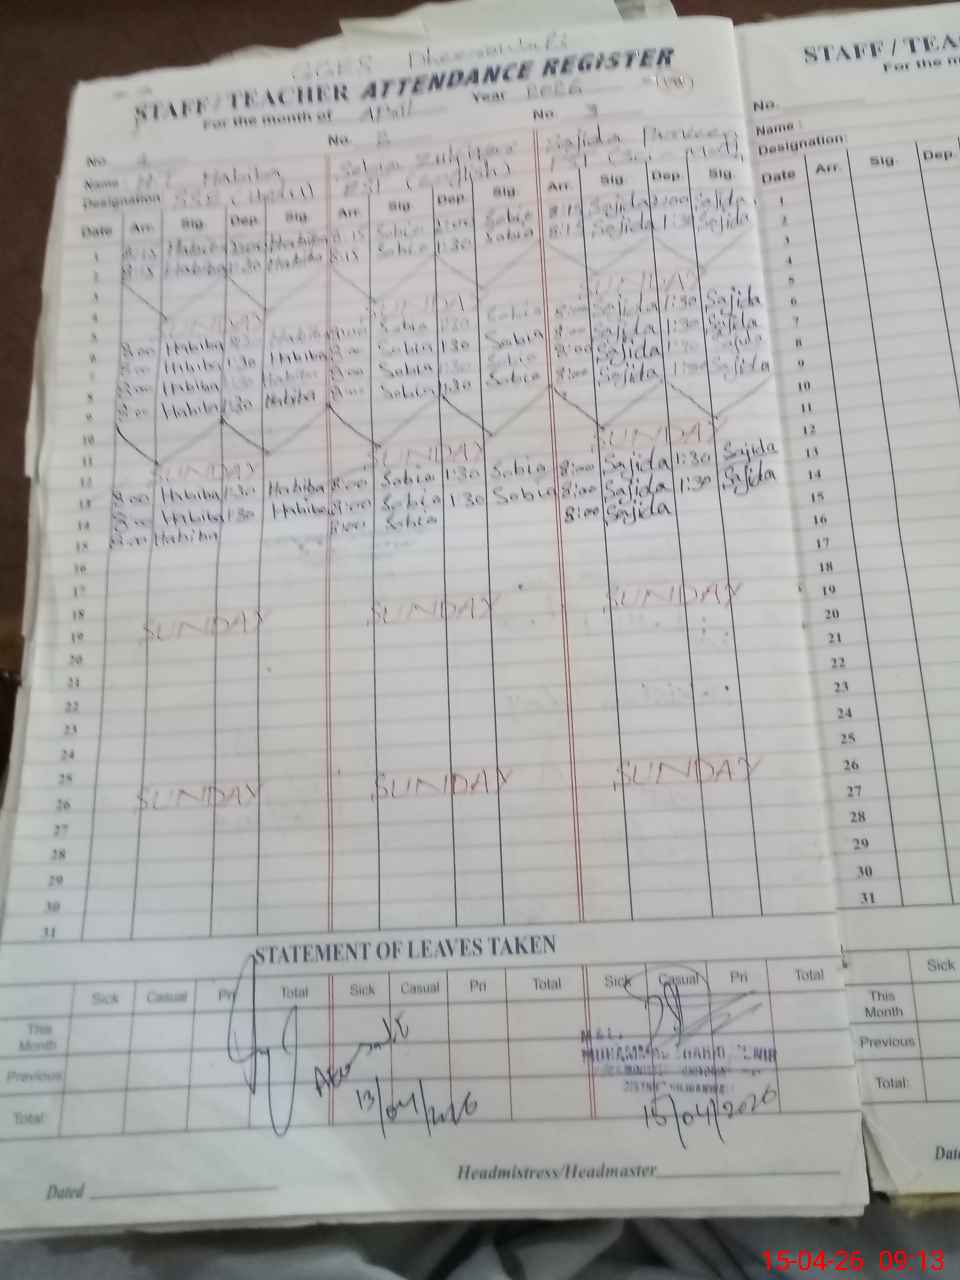 GGES
STAFF/TEACHER ATTENDANCE REGISTER
For the month of April Year 2026
No. 1 No. 2 No. 3
Name Habiba Sobia Sajida
Designation SSE EST (English) EST
Date Arr. Sig. Dep. Sig. Arr. Sig. Dep. Sig. Arr. Sig. Dep. Sig.
1 8:15 Habiba Habiba 8:15 Sobia Sobia 8:15 Sajida Sajida
2 8:15 Habiba 1:30 Habiba 8:15 Sobia 1:30 Sobia 8:15 Sajida 1:30 Sajida
3
4
SUNDAY SUNDAY SUNDAY
6 8:00 Habiba Habiba 8:00 Sobia 1:30 Sobia 8:00 Sajida 1:30 Sajida
7 8:00 Habiba 1:30 Habiba 8:00 Sobia 1:30 Sobia 8:00 Sajida 1:30 Sajida
8 8:00 Habiba 1:30 Habiba 8:00 Sobia 1:30 Sobia 8:00 Sajida 1:30 Sajida
9 8:00 Habiba 1:30 Habiba 8:00 Sobia 1:30 Sobia 8:00 Sajida 1:30 Sajida
10
11
12 SUNDAY SUNDAY SUNDAY
13 8:00 Habiba 1:30 Habiba 8:00 Sobia 1:30 Sobia 8:00 Sajida 1:30 Sajida
14 8:00 Habiba 1:30 Habiba 8:00 Sobia 1:30 Sobia 8:00 Sajida 1:30 Sajida
15 8:00 Habiba 8:00 Sobia 8:00 Sajida
16
17
18
19 SUNDAY SUNDAY SUNDAY
20
21
22
23
24
25
26 SUNDAY SUNDAY SUNDAY
27
28
29
30
31
STATEMENT OF LEAVES TAKEN
Sick Casual Pri Total Sick Casual Pri Total Sick Casual Pri Total
This Month
Previous
Total:
13/04/2026
15/04/2026
Headmistress/Headmaster
Dated
STAFF/TEA
For the m
No.
Name:
Designation:
Date Arr. Sig. Dep.
1
2
3
4
5
6
7
8
9
10
11
12
13
14
15
16
17
18
19
20
21
22
23
24
25
26
27
28
29
30
31
Sick
This Month
Previous
Total:
Dat
15-04-26 09:13